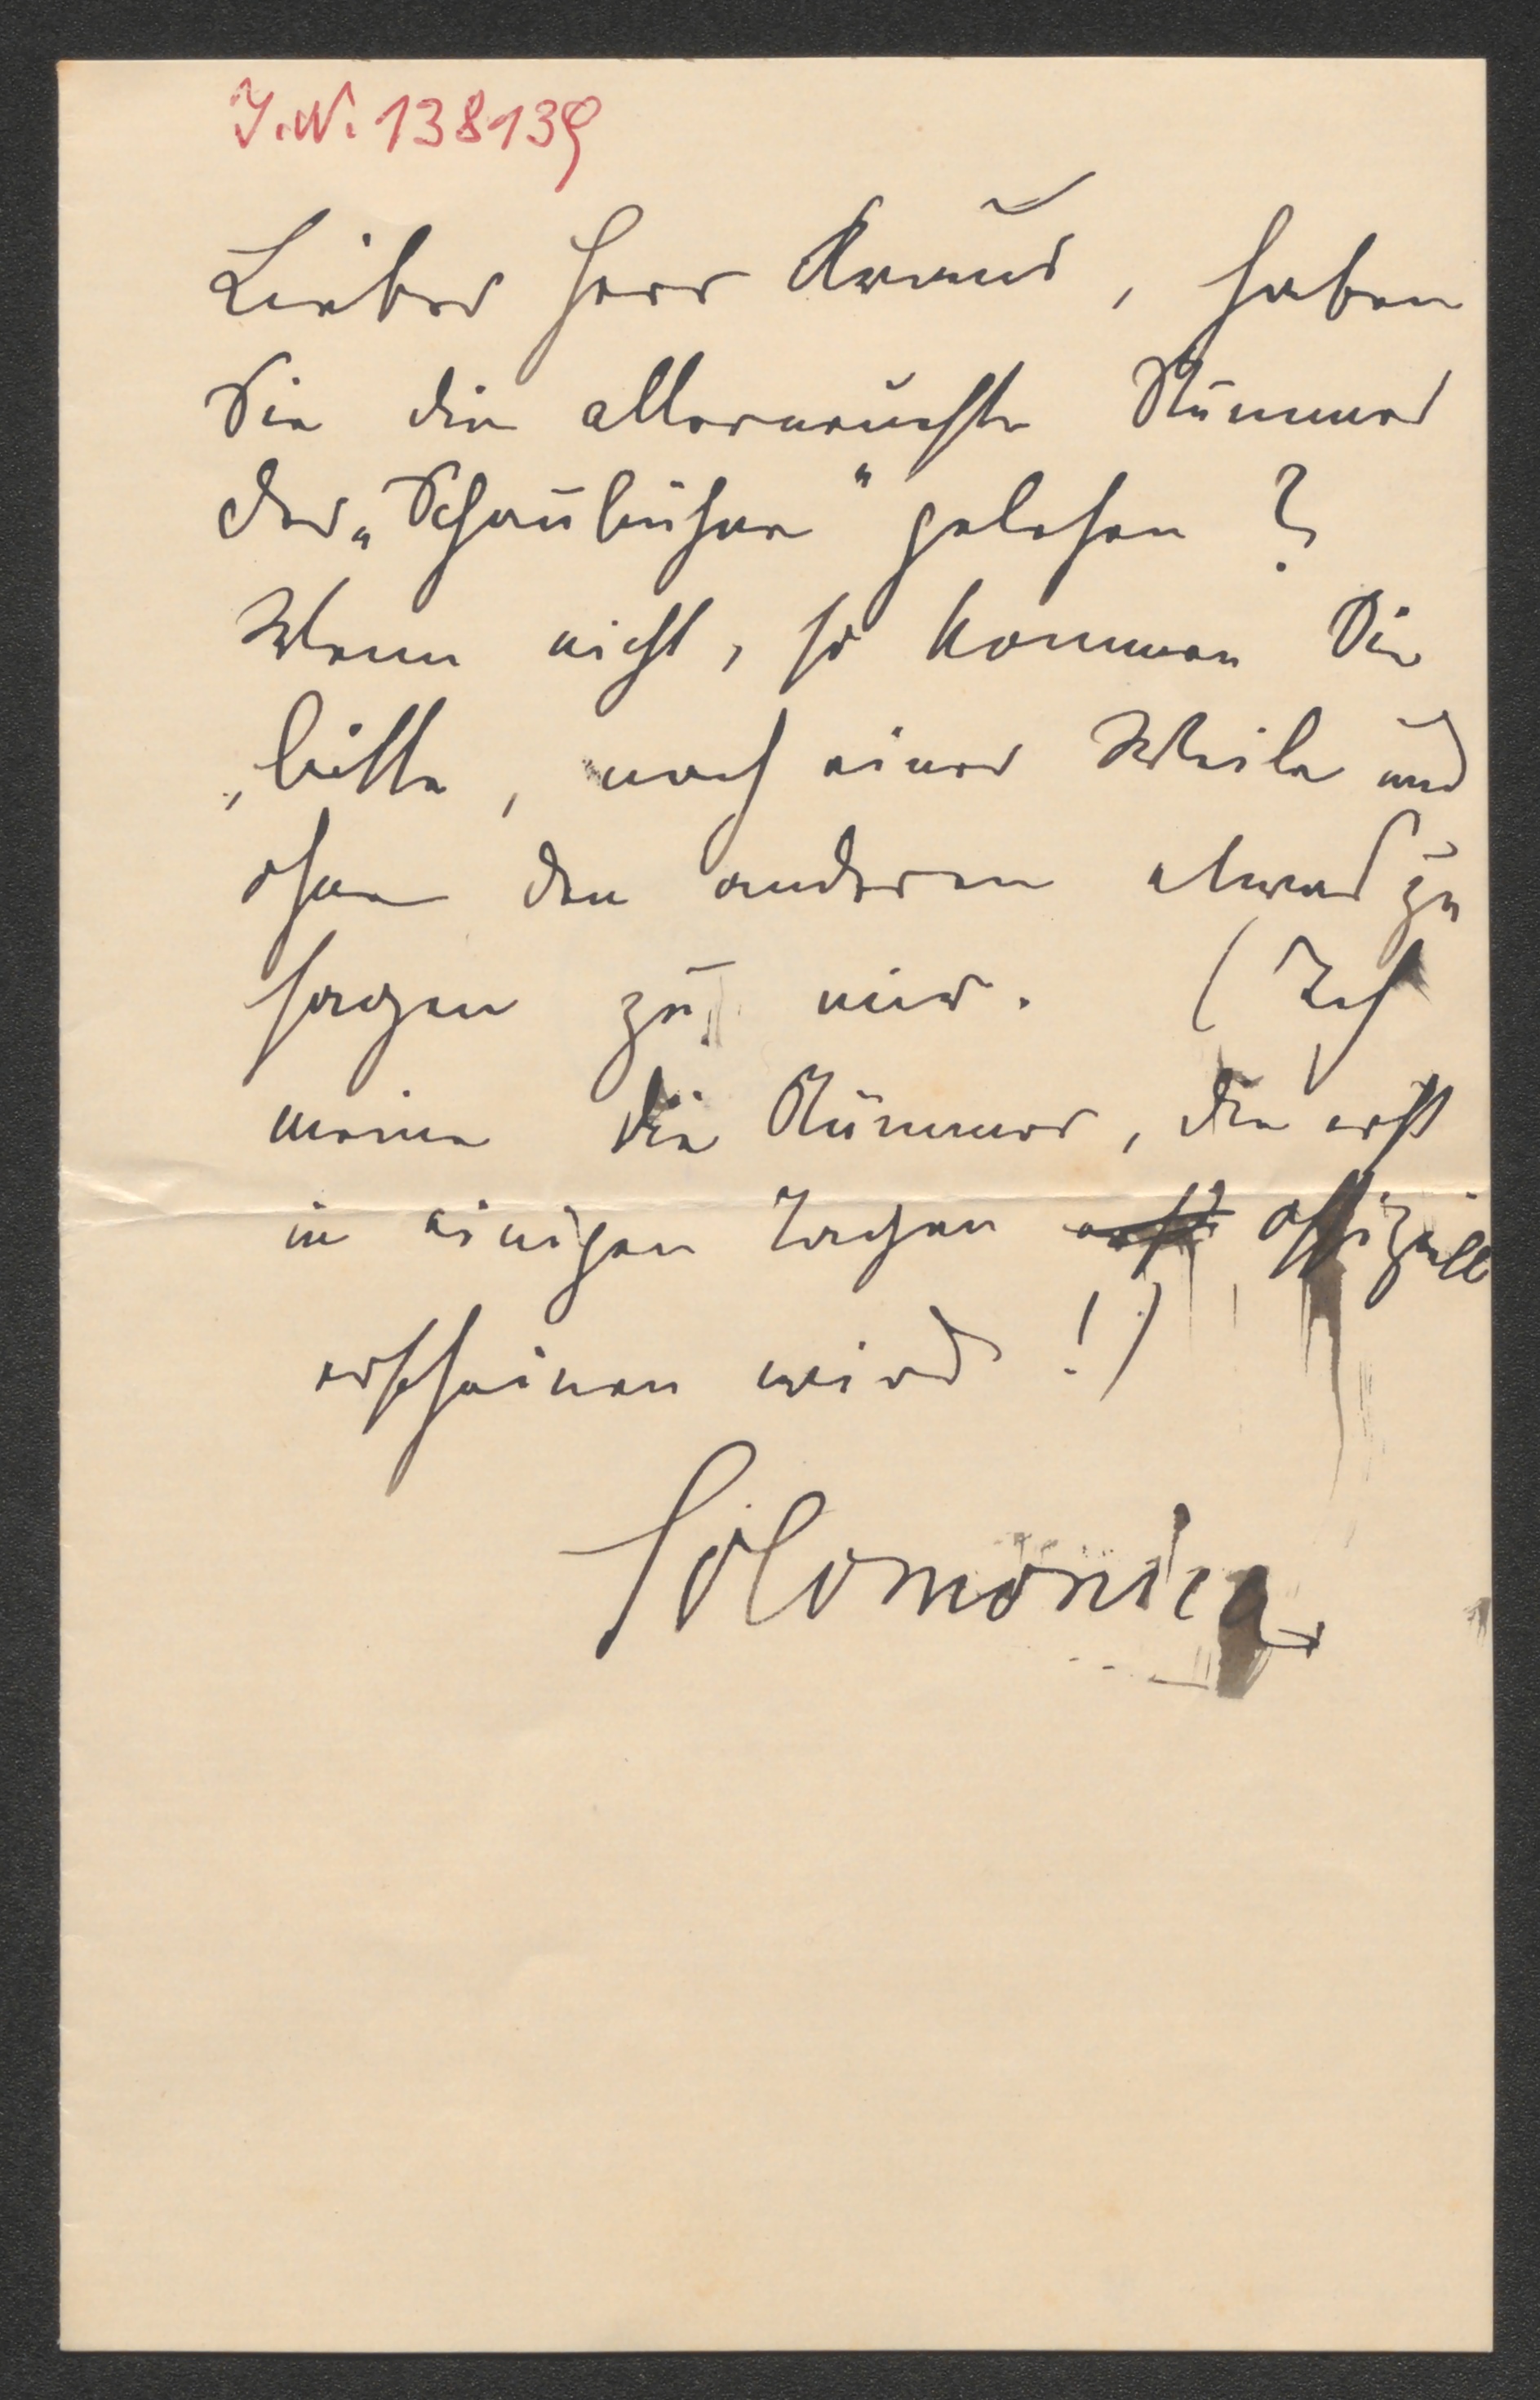 J.N. 138139
Lieber Herr Kraus, haben
Sie die allerneuste Nummer
der „Schaubühne" gelesen?
Wenn nicht, so kommen Sie
, bitte, nach einer Weile und
ohne den anderen etwas zu
sagen zu mir. (Ich
meine die Nummer, die erst
in einigen Tagen erst offiziell
erscheinen wird!)
Solomonica